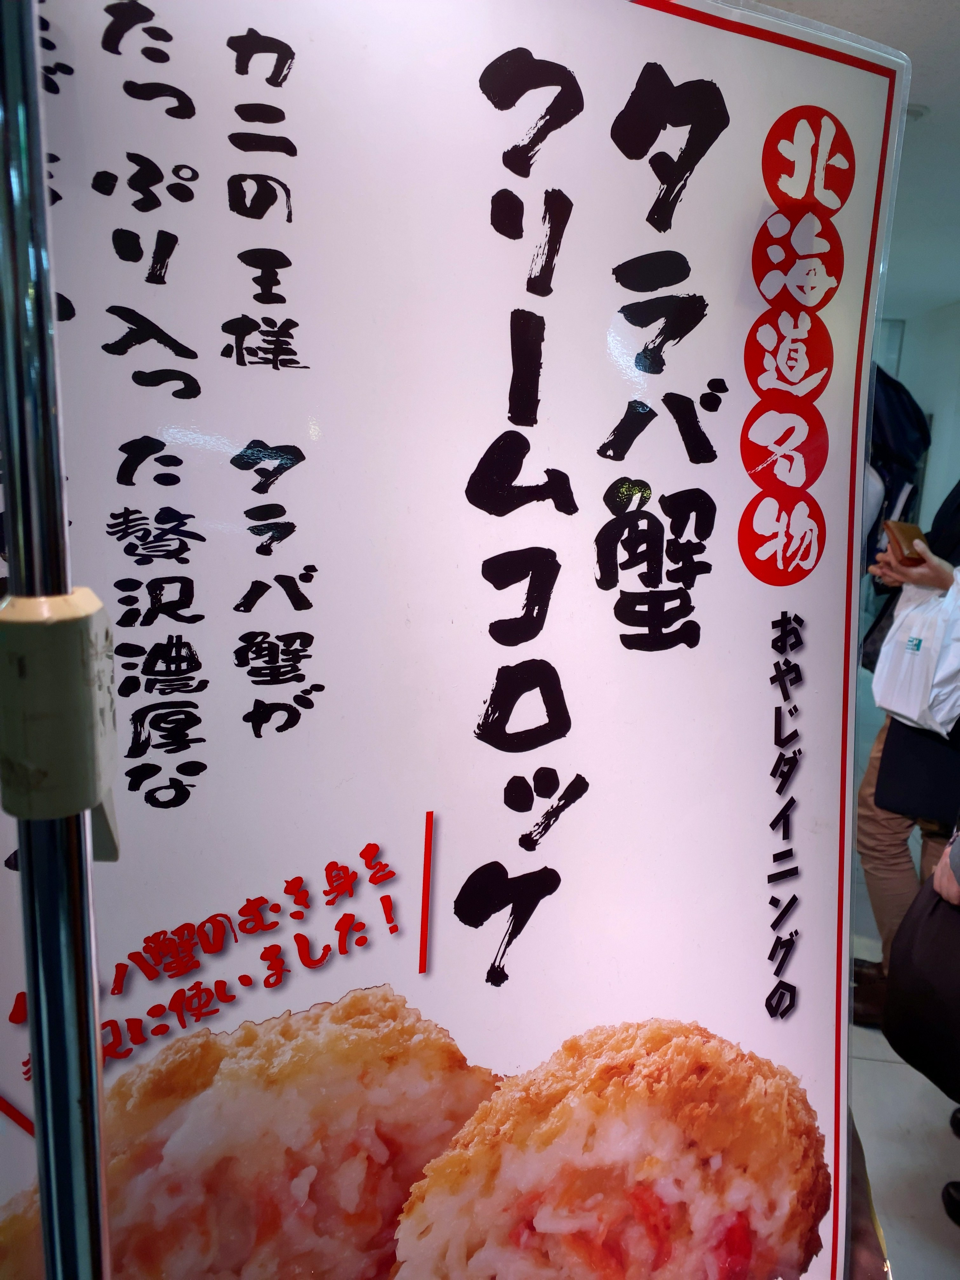 北海道名物
おやじダイニングの
タラバ蟹
クリームコロッケ
カニの王様 タラバ蟹が
たっぷり入った贅沢濃厚な
バ蟹のむき身を
に使いました!